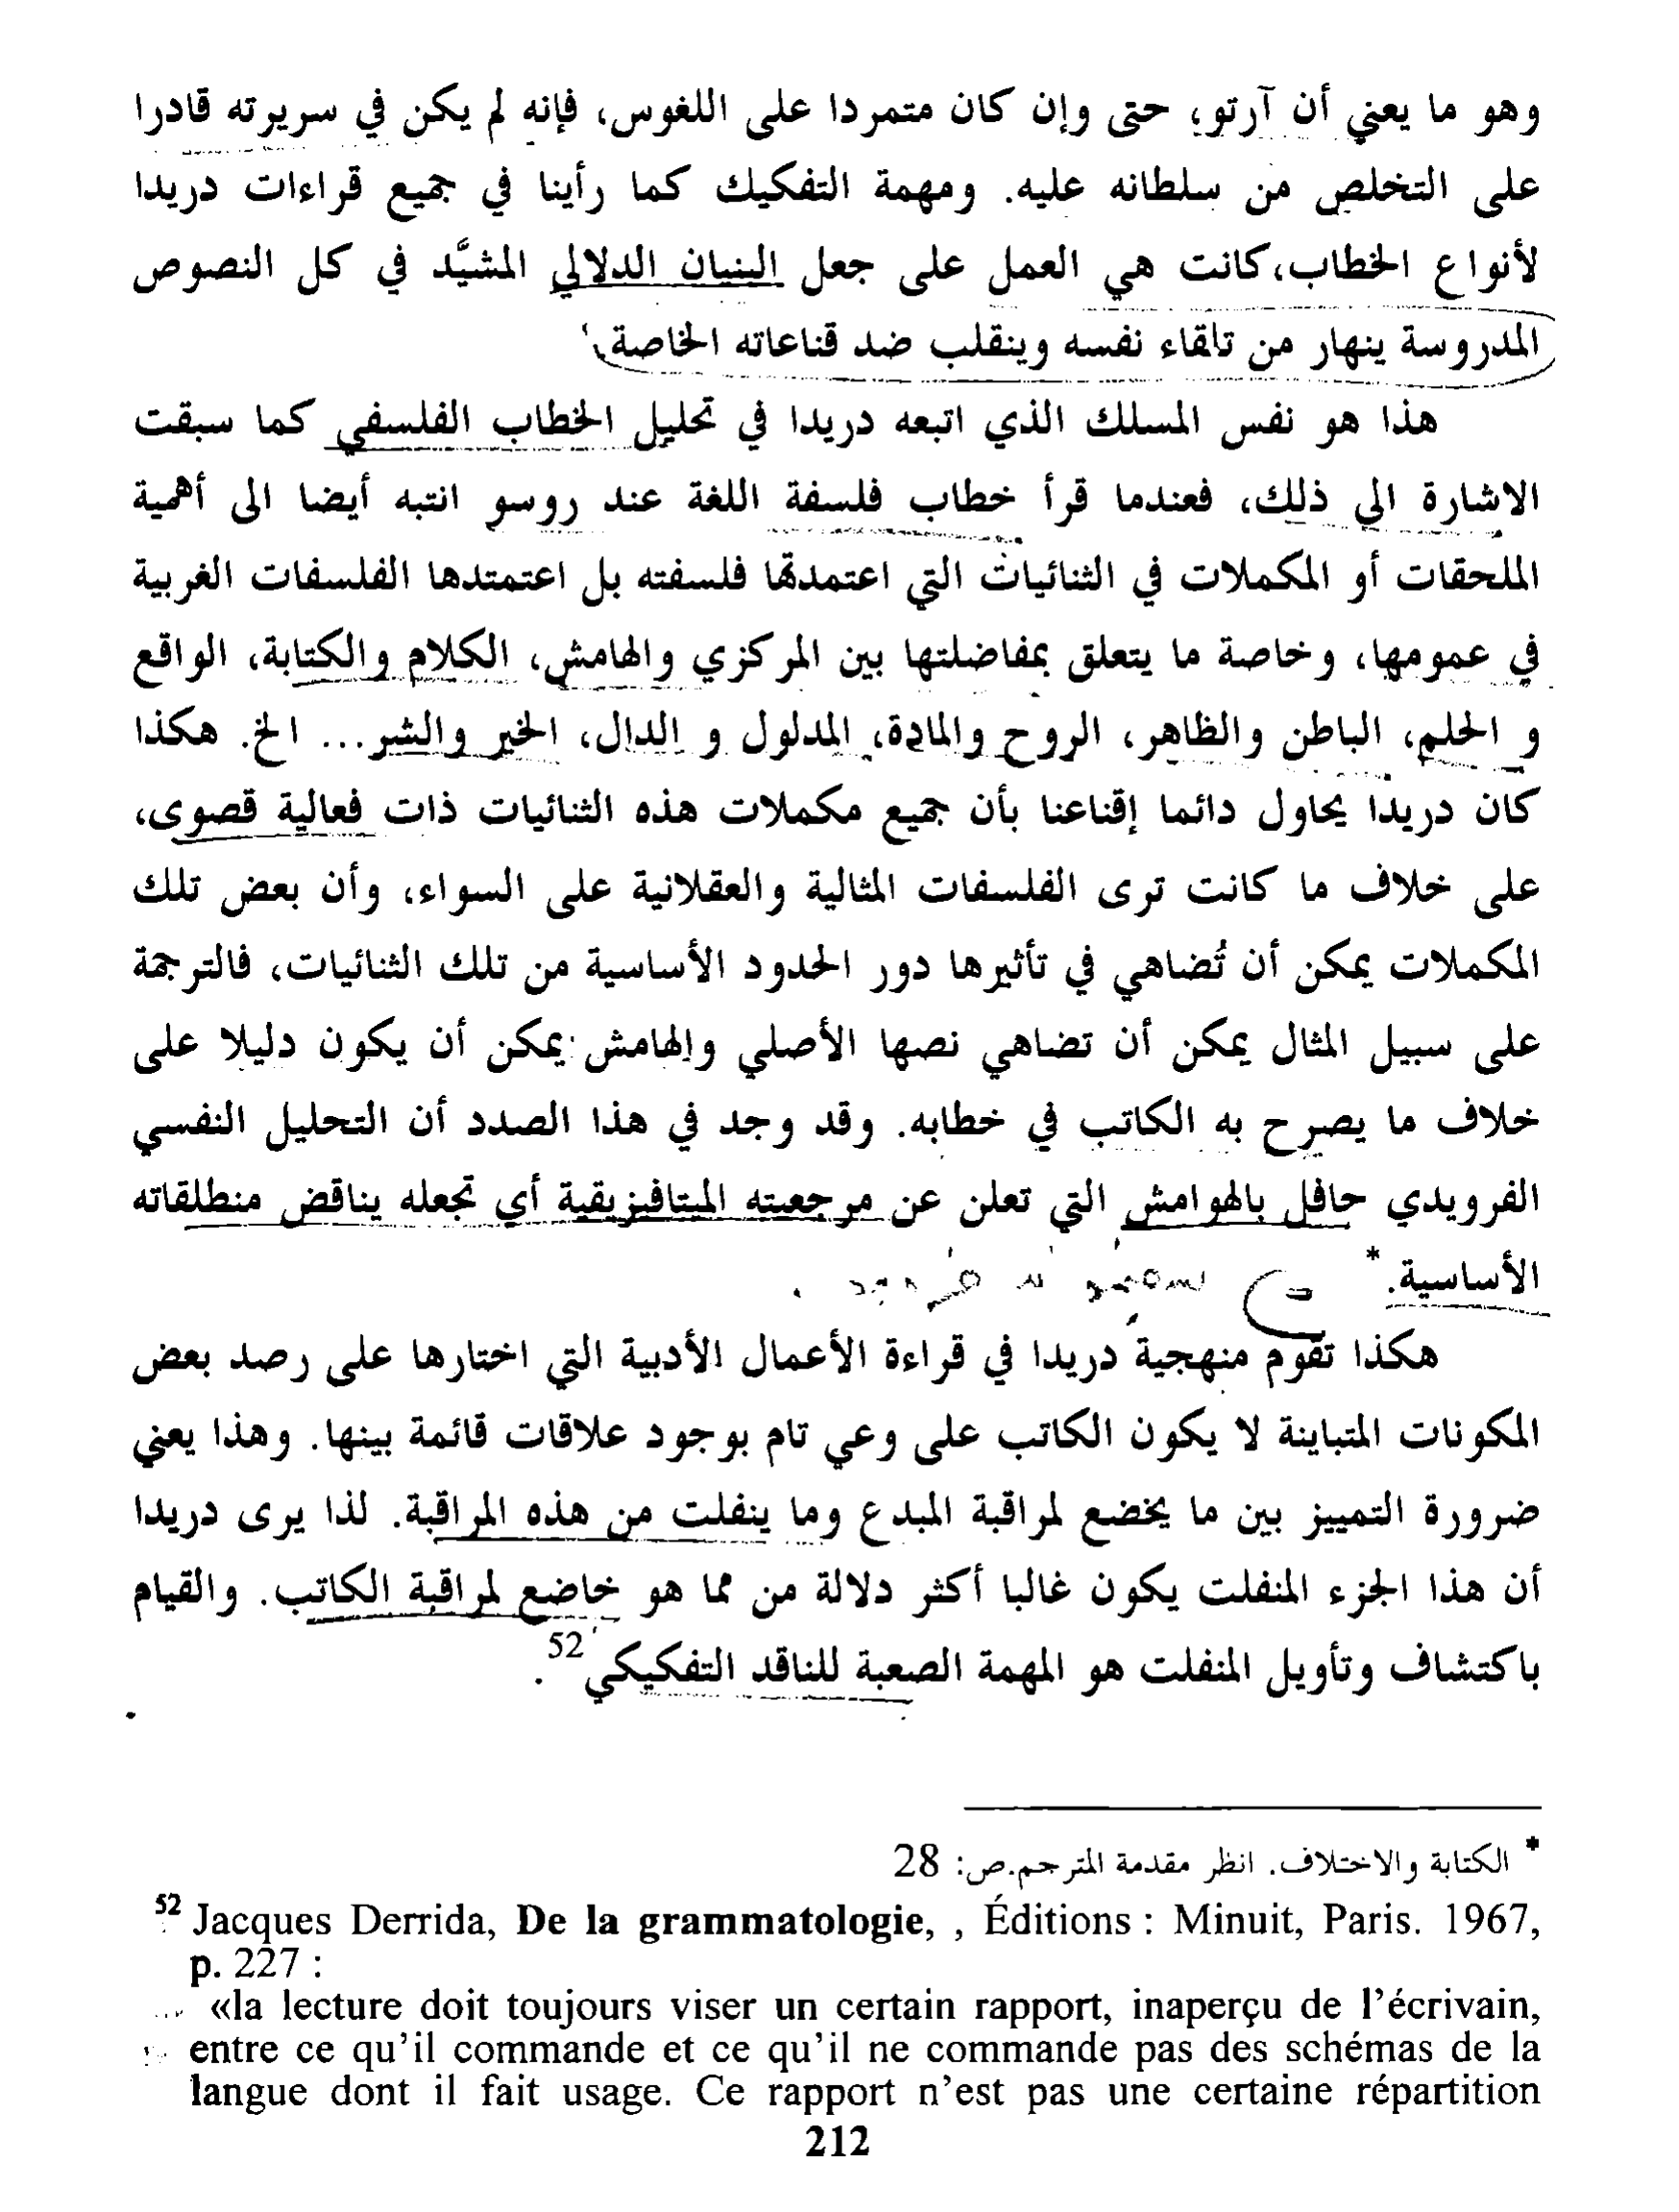 وهو ما يعني أن آرتو، حتى وإن كان متمردا على اللغوس، فإنه لم يكن في سريرته قادرا
على التخلص من سلطانه عليه. ومهمة التفكيك كما رأينا في جميع قراءات دريدا
لأنواع الخطاب،كانت هي العمل على جعل البنيان الدلالي المشيَّد في كل النصوص
المدروسة ينهار من تلقاء نفسه وينقلب ضد قناعاته الخاصة.
هذا هو نفس المسلك الذي اتبعه دريدا في تحليل الخطاب الفلسفي كما سبقت
الاشارة الى ذلك، فعندما قرأ خطاب فلسفة اللغة عند روسو انتبه أيضا الى أهمية
الملحقات أو المكملات في الثنائيات التي اعتمدتها فلسفته بل اعتمتدها الفلسفات الغربية
في عمومها، وخاصة ما يتعلق بمفاضلتها بين المركزي والهامش، الكلام والكتابة، الواقع
و الحلم، الباطن والظاهر، الروح والمادة، المدلول و الدال، الخير والشر... الخ. هكذا
كان دريدا يحاول دائما إقناعنا بأن جميع مكملات هذه الثنائيات ذات فعالية قصوى،
على خلاف ما كانت ترى الفلسفات المثالية والعقلانية على السواء، وأن بعض تلك
المكملات يمكن أن تُضاهي في تأثيرها دور الحدود الأساسية من تلك الثنائيات، فالترجمة
على سبيل المثال يمكن أن تضاهي نصها الأصلي والهامش يمكن أن يكون دليلا على
خلاف ما يصرح به الكاتب في خطابه. وقد وجد في هذا الصدد أن التحليل النفسي
الفرويدي حافل بالهوامش التي تعلن عن مرجعيته الميتافيزيقية أي تجعله يناقض منطلقاته
الأساسية.*
هكذا تقوم منهجية دريدا في قراءة الأعمال الأدبية التي اختارها على رصد بعض
المكونات المتباينة لا يكون الكاتب على وعي تام بوجود علاقات قائمة بينها. وهذا يعني
ضرورة التمييز بين ما يخضع لمراقبة المبدع وما ينفلت من هذه المراقبة. لذا يرى دريدا
أن هذا الجزء المنفلت يكون غالبا أكثر دلالة من مما هو خاضع لمراقبة الكاتب. والقيام
باكتشاف وتأويل المنفلت هو المهمة الصعبة للناقد التفكيكي52.
* الكتابة والاختلاف. انظر مقدمة المترجم.ص: 28
52 Jacques Derrida, De la grammatologie, , Éditions : Minuit, Paris. 1967,
p. 227 :
«la lecture doit toujours viser un certain rapport, inaperçu de l'écrivain,
entre ce qu'il commande et ce qu'il ne commande pas des schémas de la
langue dont il fait usage. Ce rapport n'est pas une certaine répartition
212